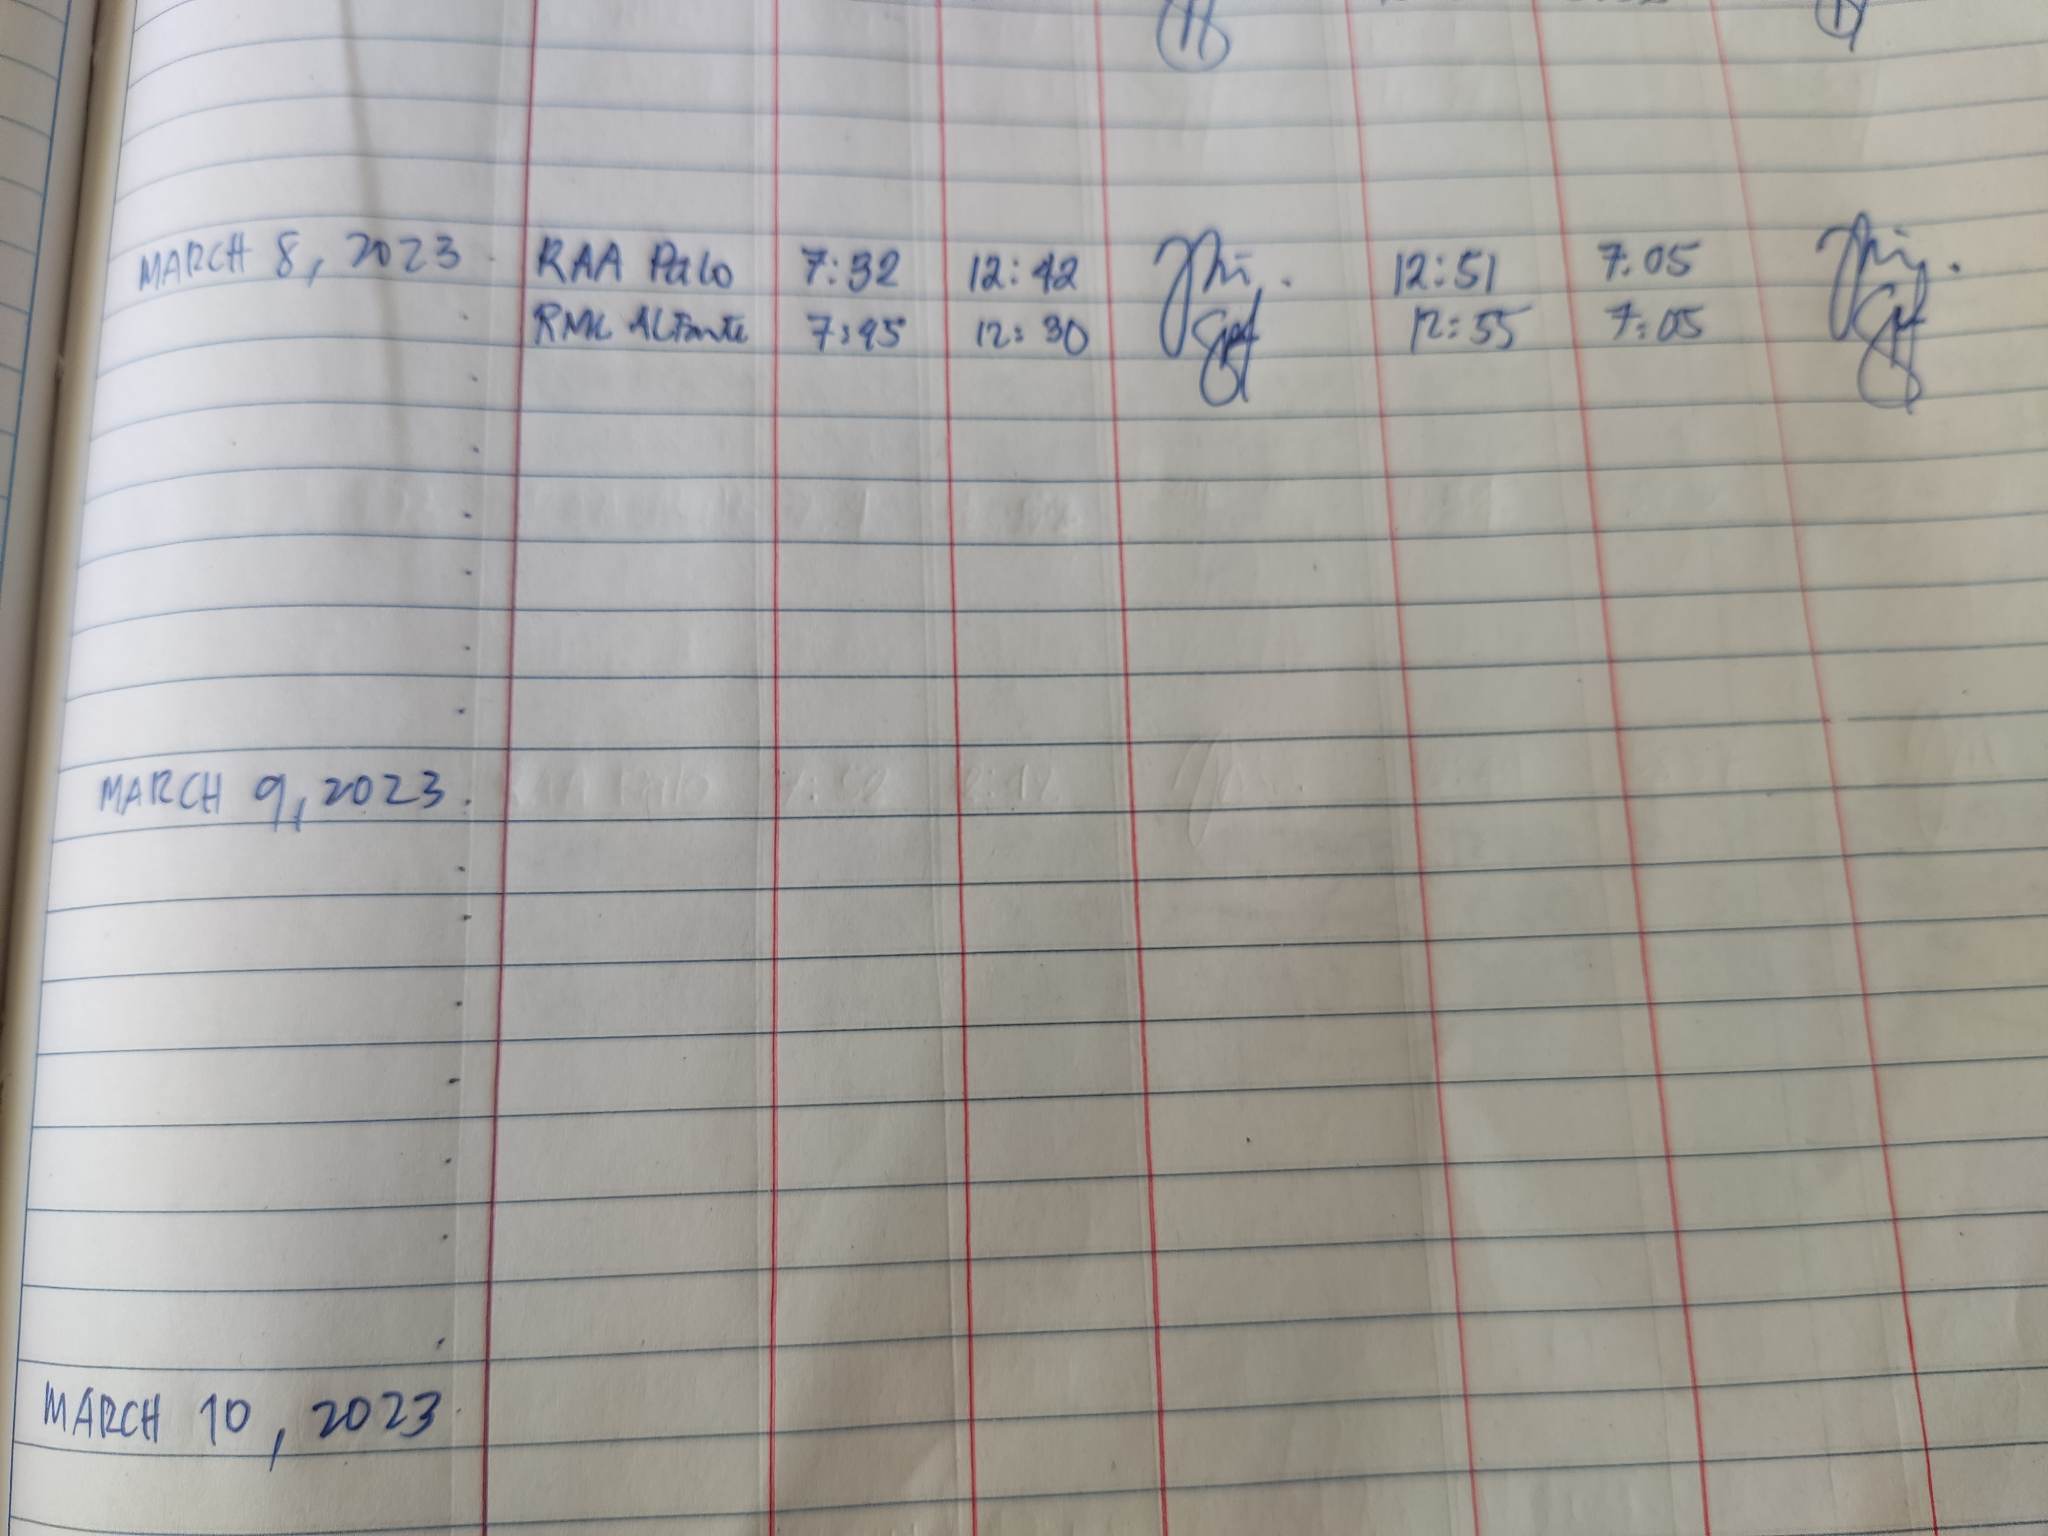 MARCH 8, 2023 RAA Palo 7:32 12:42 12:51 7:05
RMK Alfante 7:45 12:30 12:55 7:05
MARCH 9, 2023
MARCH 10, 2023